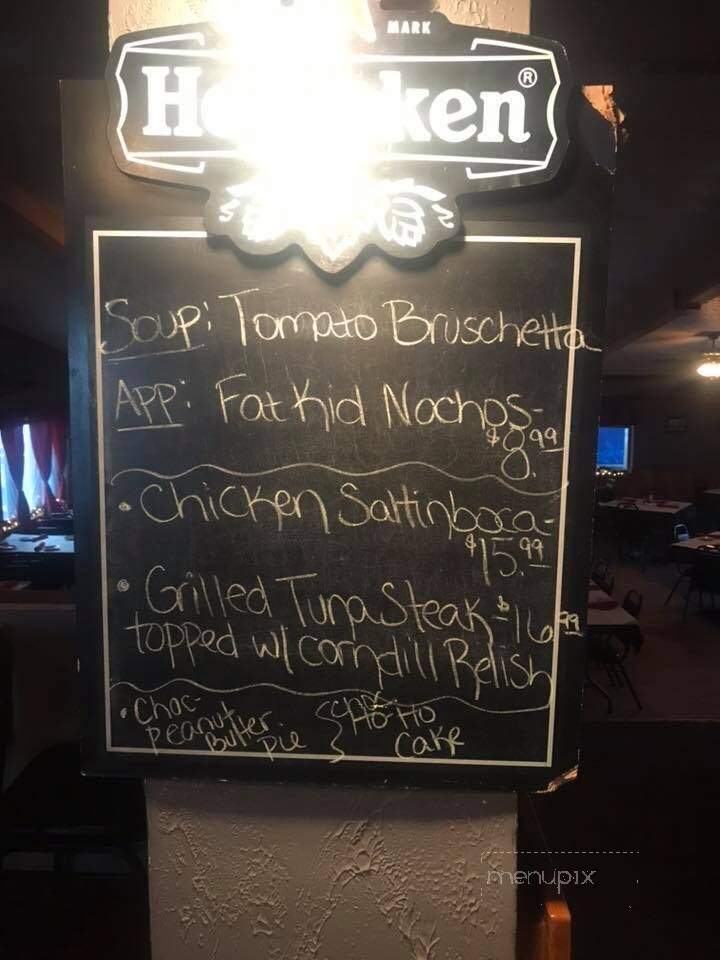 MARK
H ken ®
Soup: Tomato Bruschetta
APP: Fat Kid Nachos-
$8.99
• Chicken Saltinboca-
$15.99
• Grilled Tuna Steak-$16.99
topped w/ corn dill Relish
• Choc
peanut
Butter
Pie
Choc
Ho-Ho
Cake
menupix